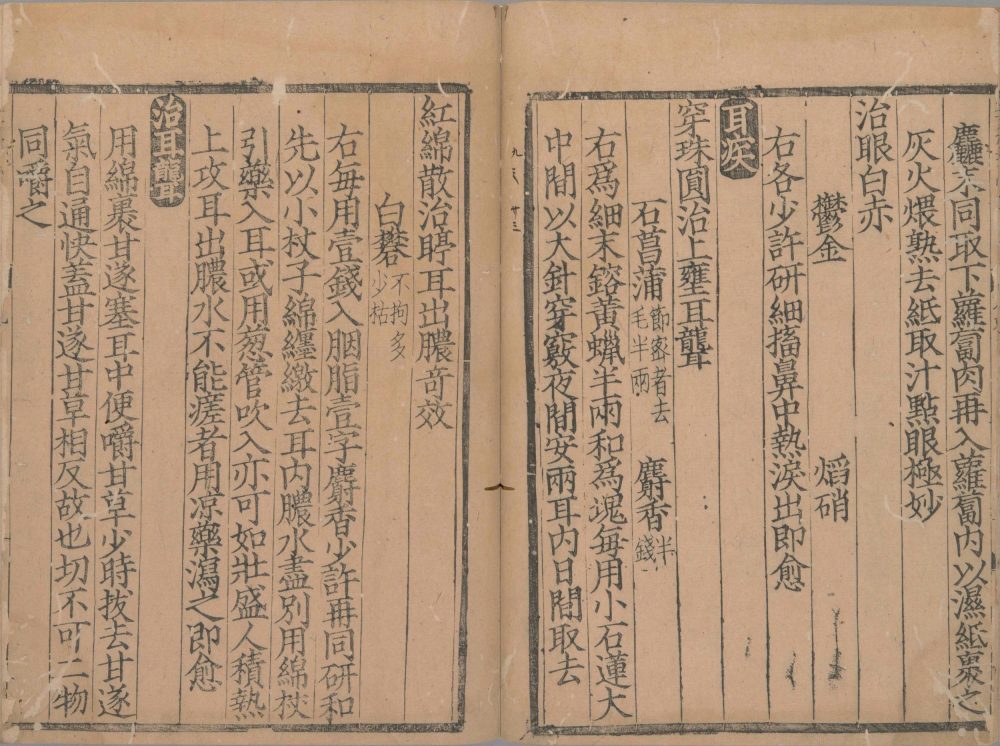 麤末同取下蘿蔔肉再入蘿蔔內以濕紙裹之
灰火煨熟去紙取汁點眼極妙
治眼白赤
鬱金 焰硝
右各少許研細搐鼻中熱淚出即愈
耳疾
穿珠圎治上壅耳聾
石菖蒲節密者去毛半兩 麝香半錢
右爲細末鎔黃蠟半兩和爲塊每用小石蓮大
中間以大針穿竅夜間安兩耳內日間取去
九 卄三
紅綿散治聤耳出膿奇效
白礬不拘多少枯
右每用壹錢入胭脂壹字麝香少許再同研和
先以小杖子綿纏繳去耳內膿水盡別用綿杖
引藥入耳或用葱管吹入亦可如壯盛人積熱
上攻耳出膿水不能瘥者用凉藥瀉之即愈
治耳聾
用綿裹甘遂塞耳中便嚼甘草少時拔去甘遂
氣自通快蓋甘遂甘草相反故也切不可二物
同嚼之